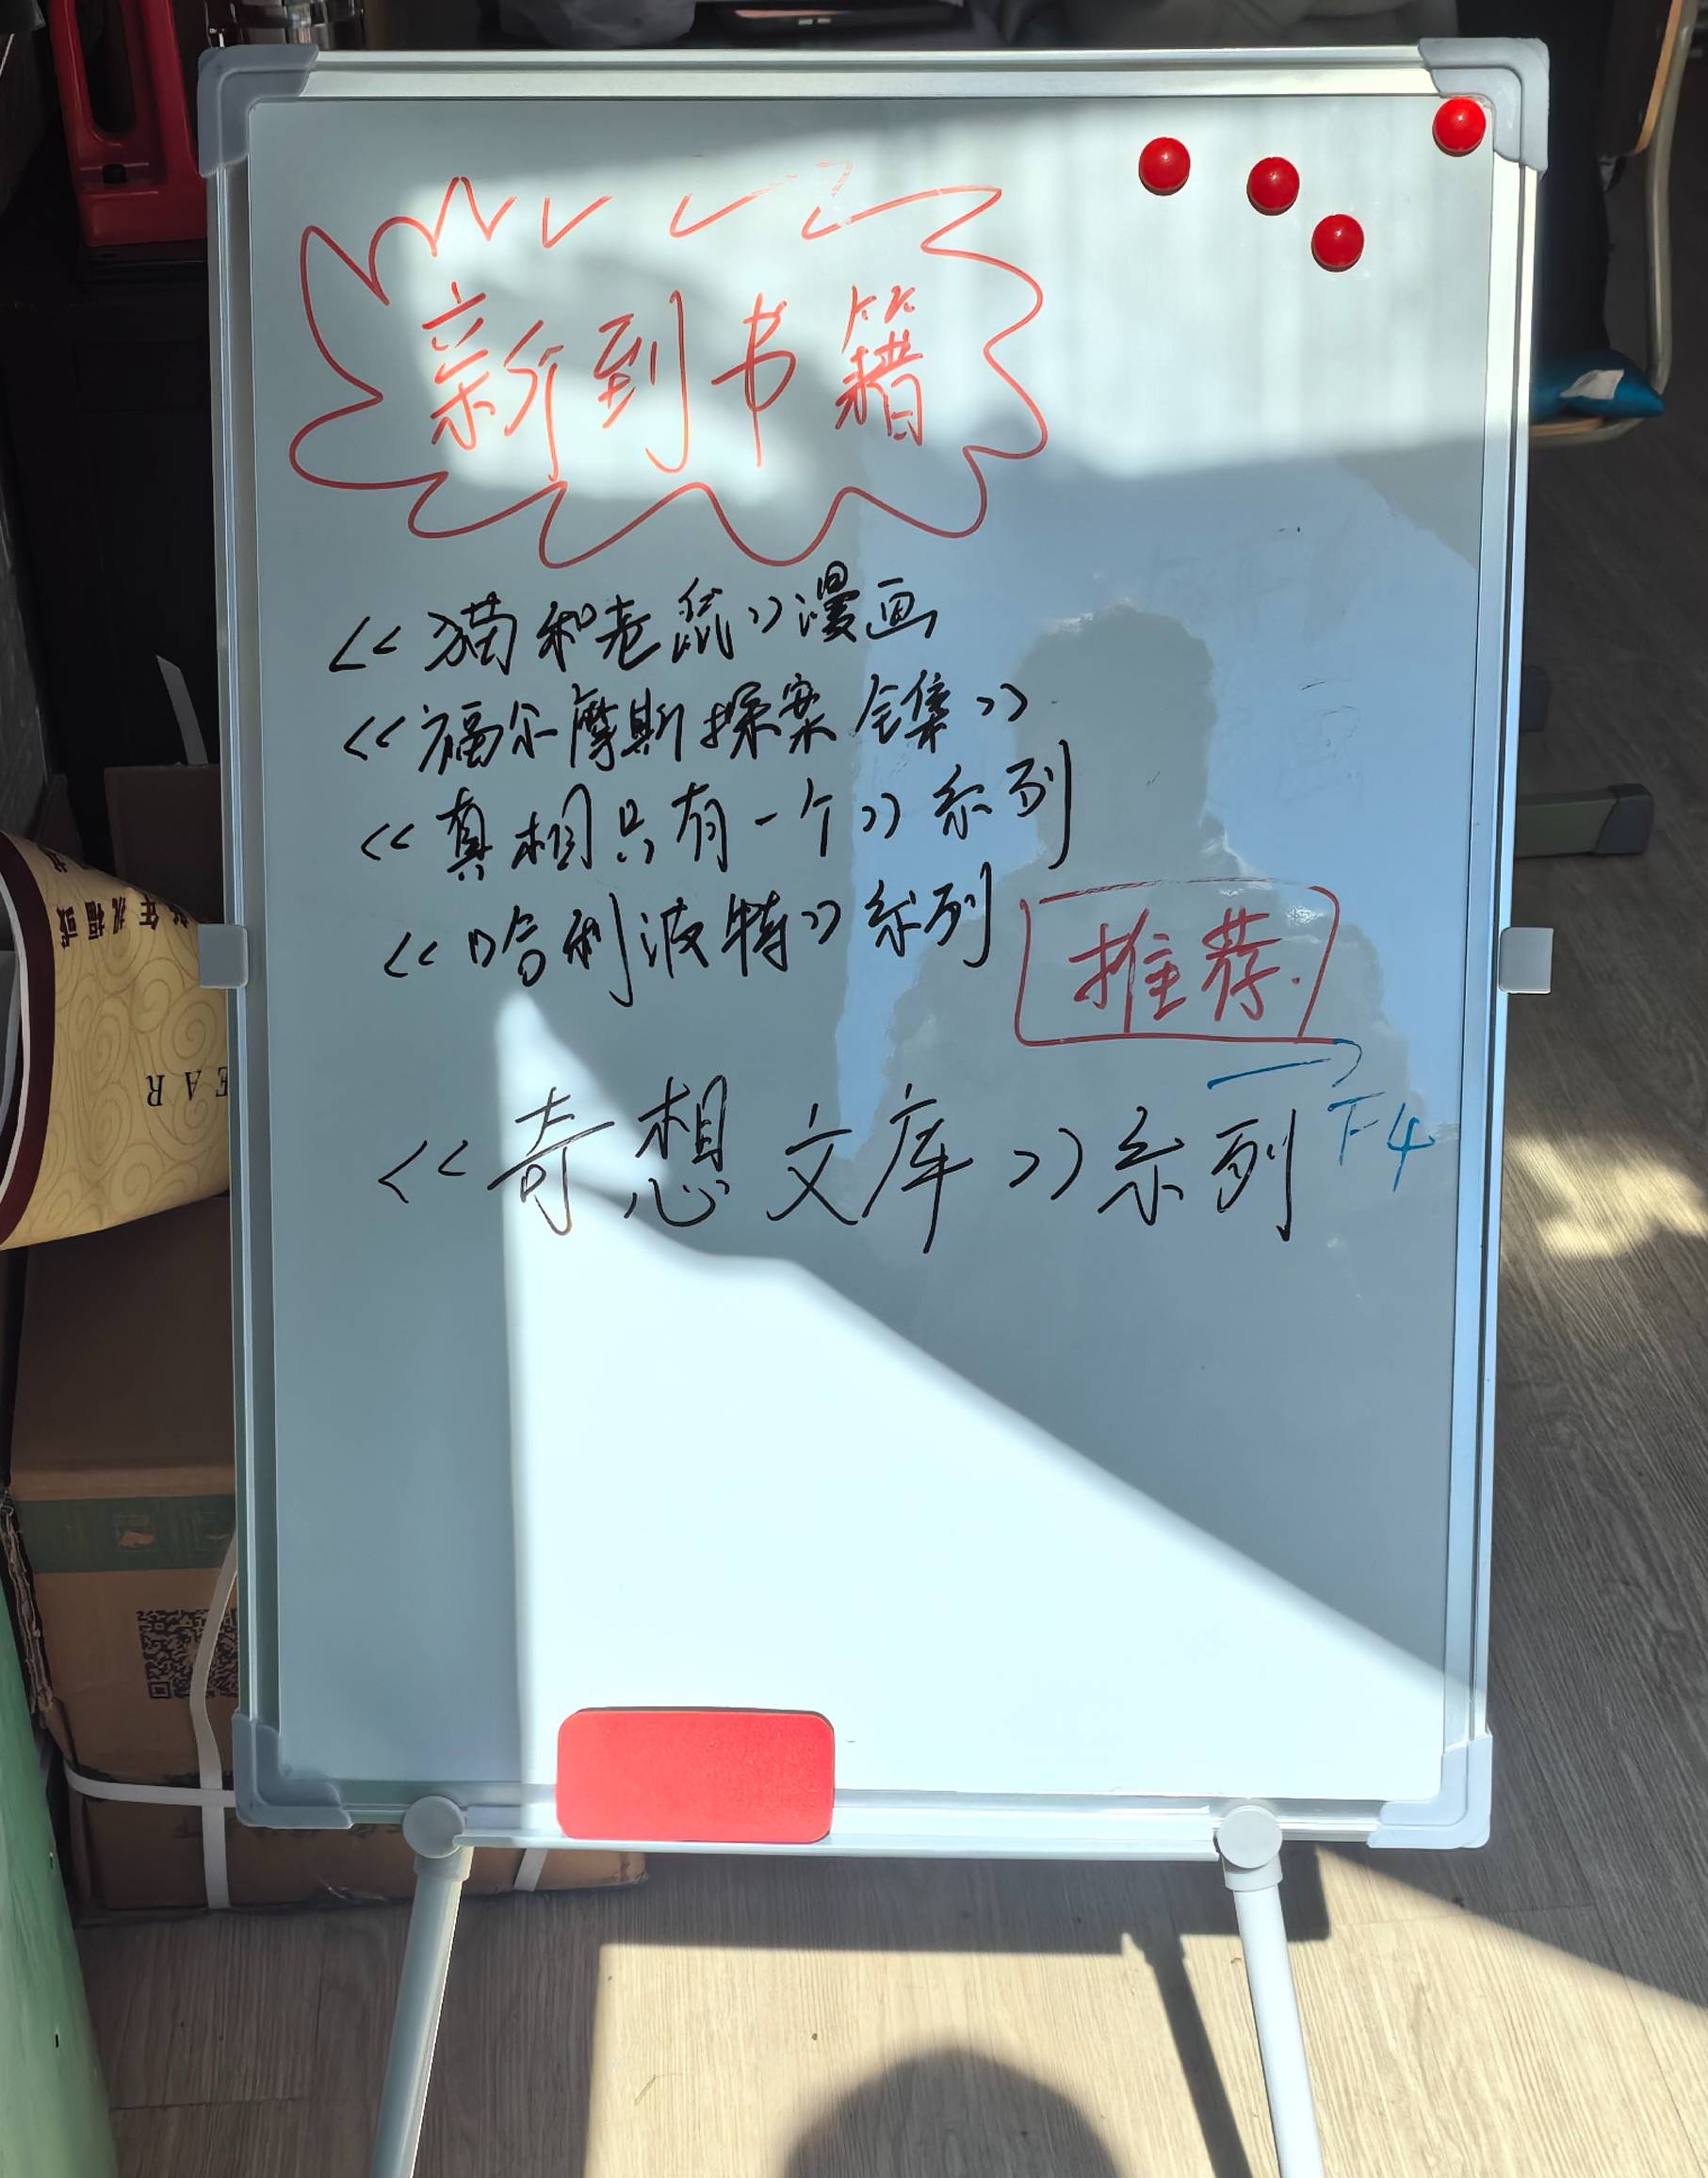 新到书籍
《猫和老鼠》漫画
《福尔摩斯探案全集》
《真相只有一个》系列
《哈利波特》系列
推荐.
《奇想文库》系列 F4
EAR